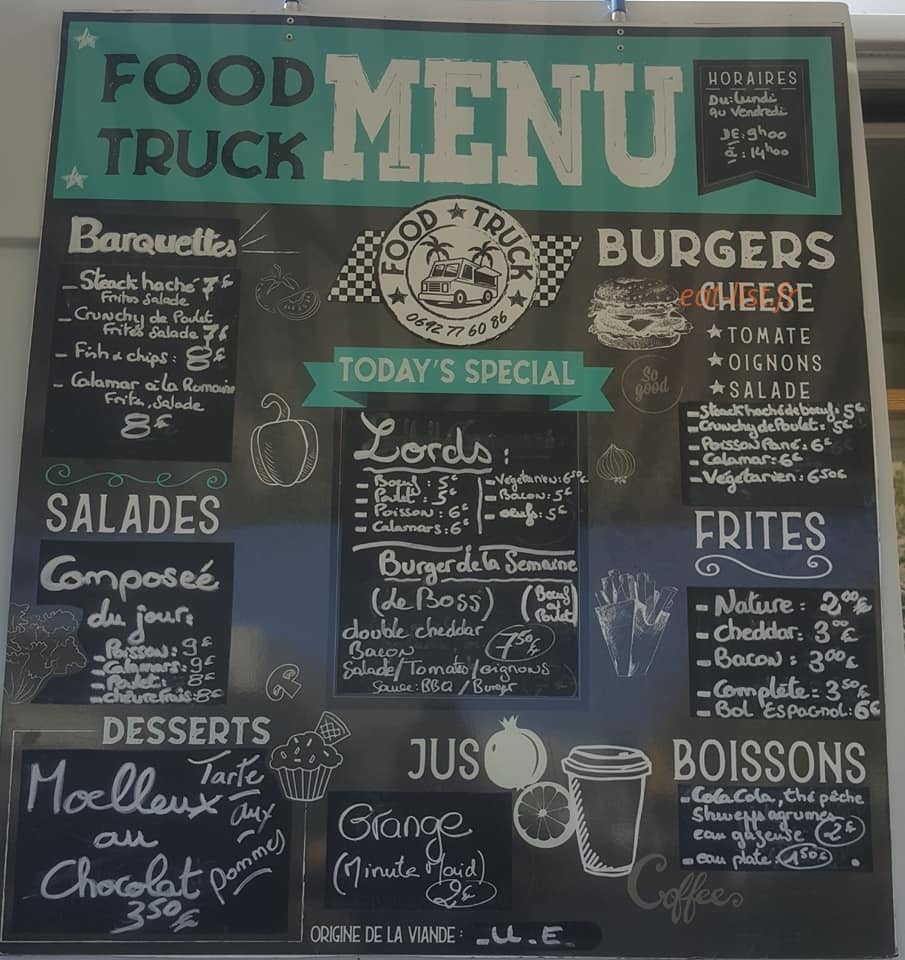 FOOD
TRUCK
MENU
HORAIRES
Du: Lundi
au Vendredi
DE: 9h00
à: 14h00
Barquettes
- Steack haché 7€
Frites Salade
- Crunchy de Poulet
Frites Salade 7€
- Fish & chips: 8€
- Calamar à la Romaine
Frite, Salade
8€
SALADES
Composeé
du jour:
- Poisson: 9€
- Calamars: 9€
- Poulet: 8€
- chèvre frais: 8€
DESSERTS
Moelleux
au
Chocolat
3,50€
Tarte
aux
pommes
FOOD ★ TRUCK
0692 77 60 86
TODAY'S SPECIAL
Lords:
- Bœuf: 5€
- Poulet: 5€
- Poisson: 6€
- Calamars: 6€
- Végétarien: 6,50€
- Bacon: 5€
- œufs: 5€
Burger de la Semaine
(de Boss)
(Bœuf
et
Poulet)
double cheddar
Bacon
7,50€
Salade/Tomato/oignons
Sauce: BBQ / Burger
JUS
Orange
(Minute Maid)
2€
BURGERS
CHEESE
eat-list.fr
★ TOMATE
★ OIGNONS
★ SALADE
So
good
- Steack haché de bœuf: 5€
- Crunchy de Poulet = 5€
- Poisson Pané: 6€
- Calamar: 6€
- Végétarien: 6,50€
FRITES
- Nature: 2,00€
- Cheddar: 3,00€
- Bacon: 3,00€
- Complète = 3,50€
- Bol Espagnol: 6€
BOISSONS
- Coca Cola, thé pêche
Shweeps agrumes
eau gazeuse 2€
- eau plate: 1,50€
Coffee
ORIGINE DE LA VIANDE: - U. E.